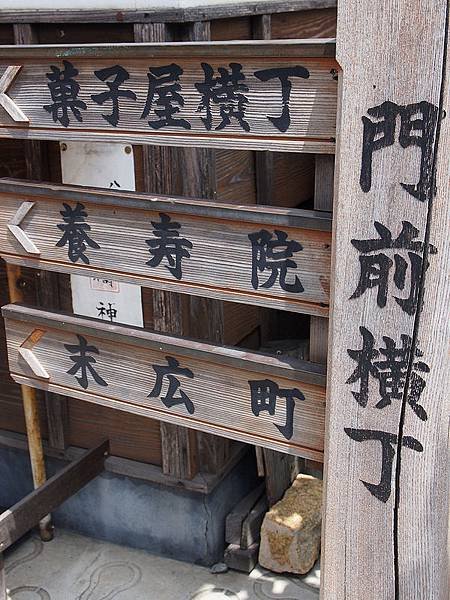 菓子屋横丁
養寿院
末広町
門前横丁
神